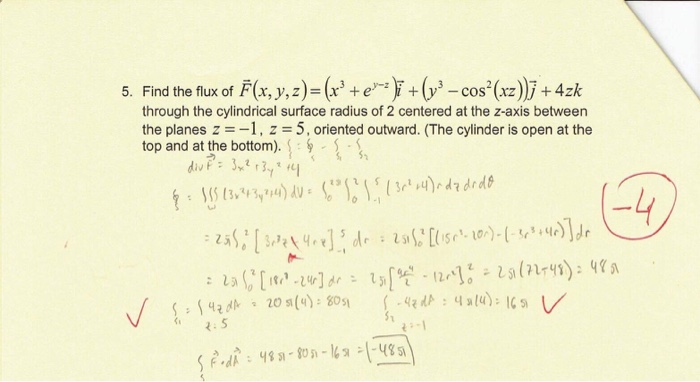 5. Find the flux of F⃗(x, y, z) = (x³ + e^(y−z))i⃗ + (y³ − cos²(xz))j⃗ + 4zk
through the cylindrical surface radius of 2 centered at the z-axis between
the planes z = −1, z = 5, oriented outward. (The cylinder is open at the
top and at the bottom). ∫ = ∮ − ∫_S₁ − ∫_S₂
div F⃗ = 3x² + 3y² + 4
∮ = ∫∫∫ (3x² + 3y² + 4) dV = ∫₀^2π ∫₀² ∫₋₁⁵ (3r² + 4) r dz dr dθ
−4
= 2π ∫₀² [3r³z + 4rz]₋₁⁵ dr = 2π ∫₀² [(15r³ − 20r) − (−3r³ + 4r)] dr
= 2π ∫₀² [18r³ − 24r] dr = 2π [9r⁴/2 − 12r²]₀² = 2π (72 − 48) = 48π
✓ ∫_S₁ = ∫ 4z dA = 20π(4) = 80π ∫_S₂ −4z dA = 4π(4) = 16π ✓
z = 5 z = −1
∫_S F⃗ · dA⃗ = 48π − 80π − 16π = −48π